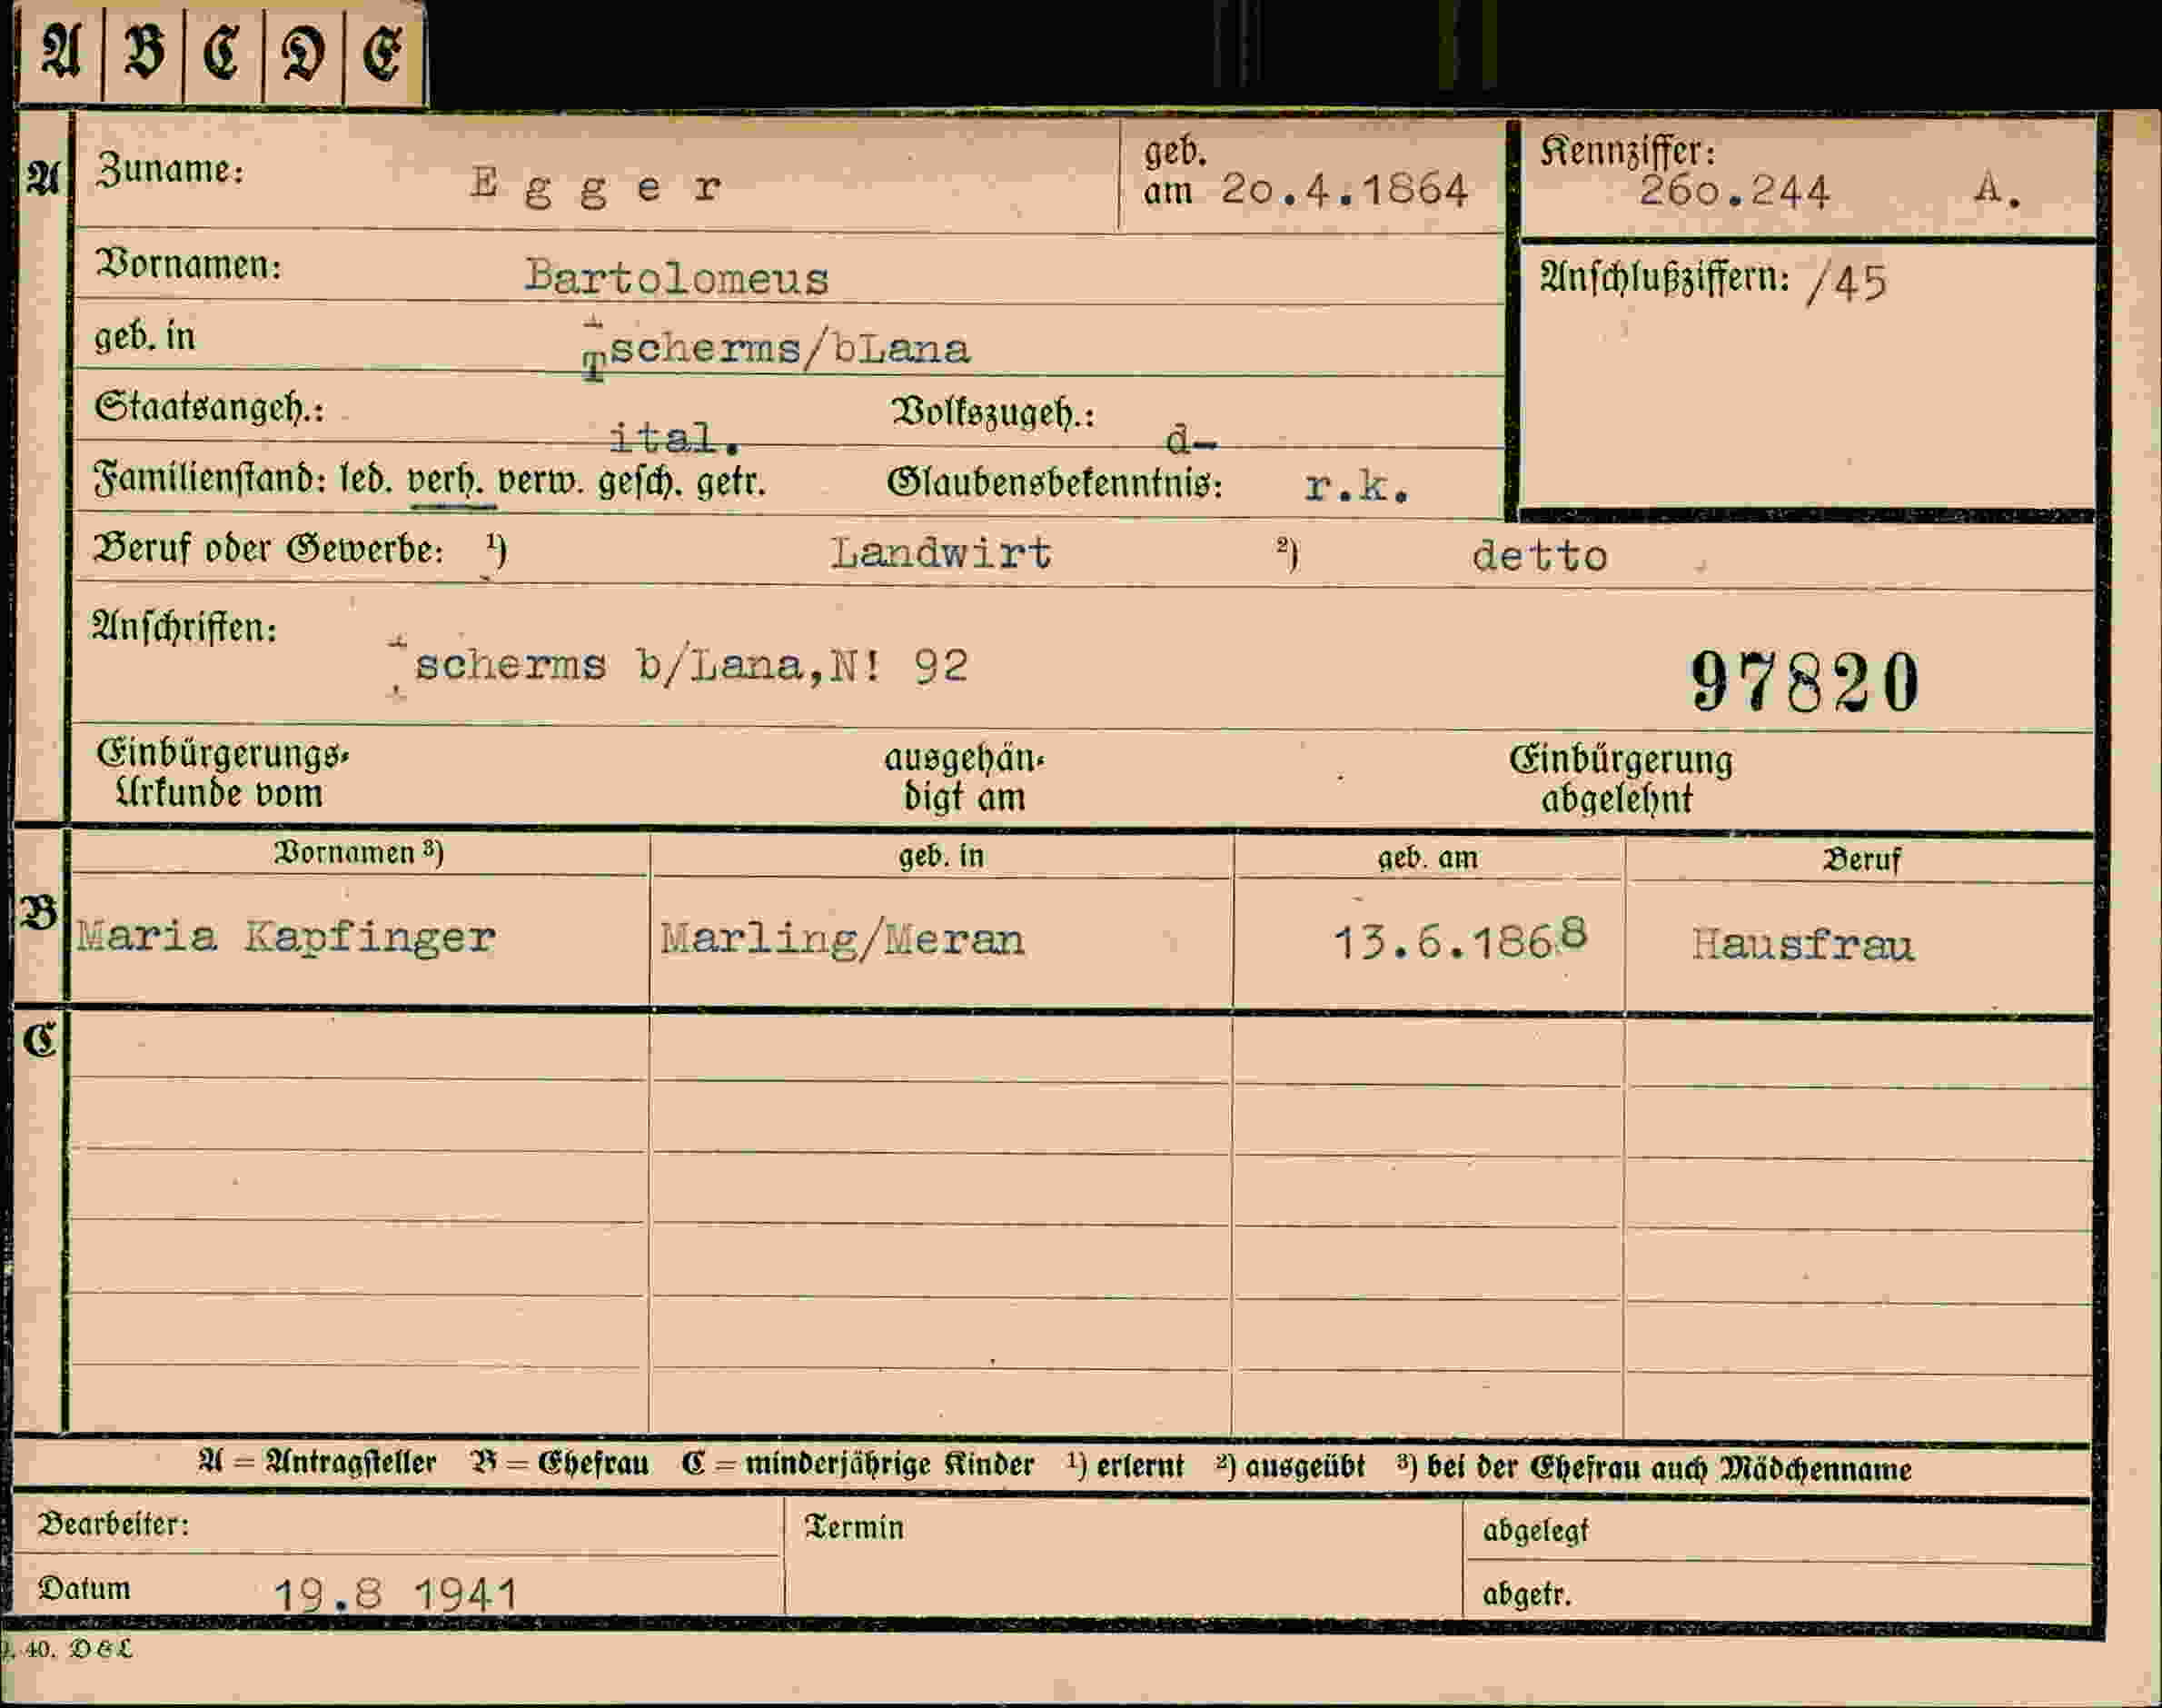 A B C D E
A Zuname: Egger geb. am 20.4.1864 Kennziffer: 260.244 A.
Vornamen: Bartolomeus Anschlußziffern: /45
geb. in Tscherms/bLana
Staatsangeh.: ital. Volkszugeh.: d-
Familienstand: led. verh. verw. gesch. getr. Glaubensbekenntnis: r.k.
Beruf oder Gewerbe: 1) Landwirt 2) detto
Anschriften: Tscherms b/Lana,N! 92 97820
Einbürgerungs- ausgehän- Einbürgerung
Urkunde vom digt am abgelehnt
Vornamen 3) geb. in geb. am Beruf
B Maria Kapfinger Marling/Meran 13.6.1868 Hausfrau
C
A = Antragsteller B = Ehefrau C = minderjährige Kinder 1) erlernt 2) ausgeübt 3) bei der Ehefrau auch Mädchenname
Bearbeiter: Termin abgelegt
Datum 19.8 1941 abgetr.
40. D&L